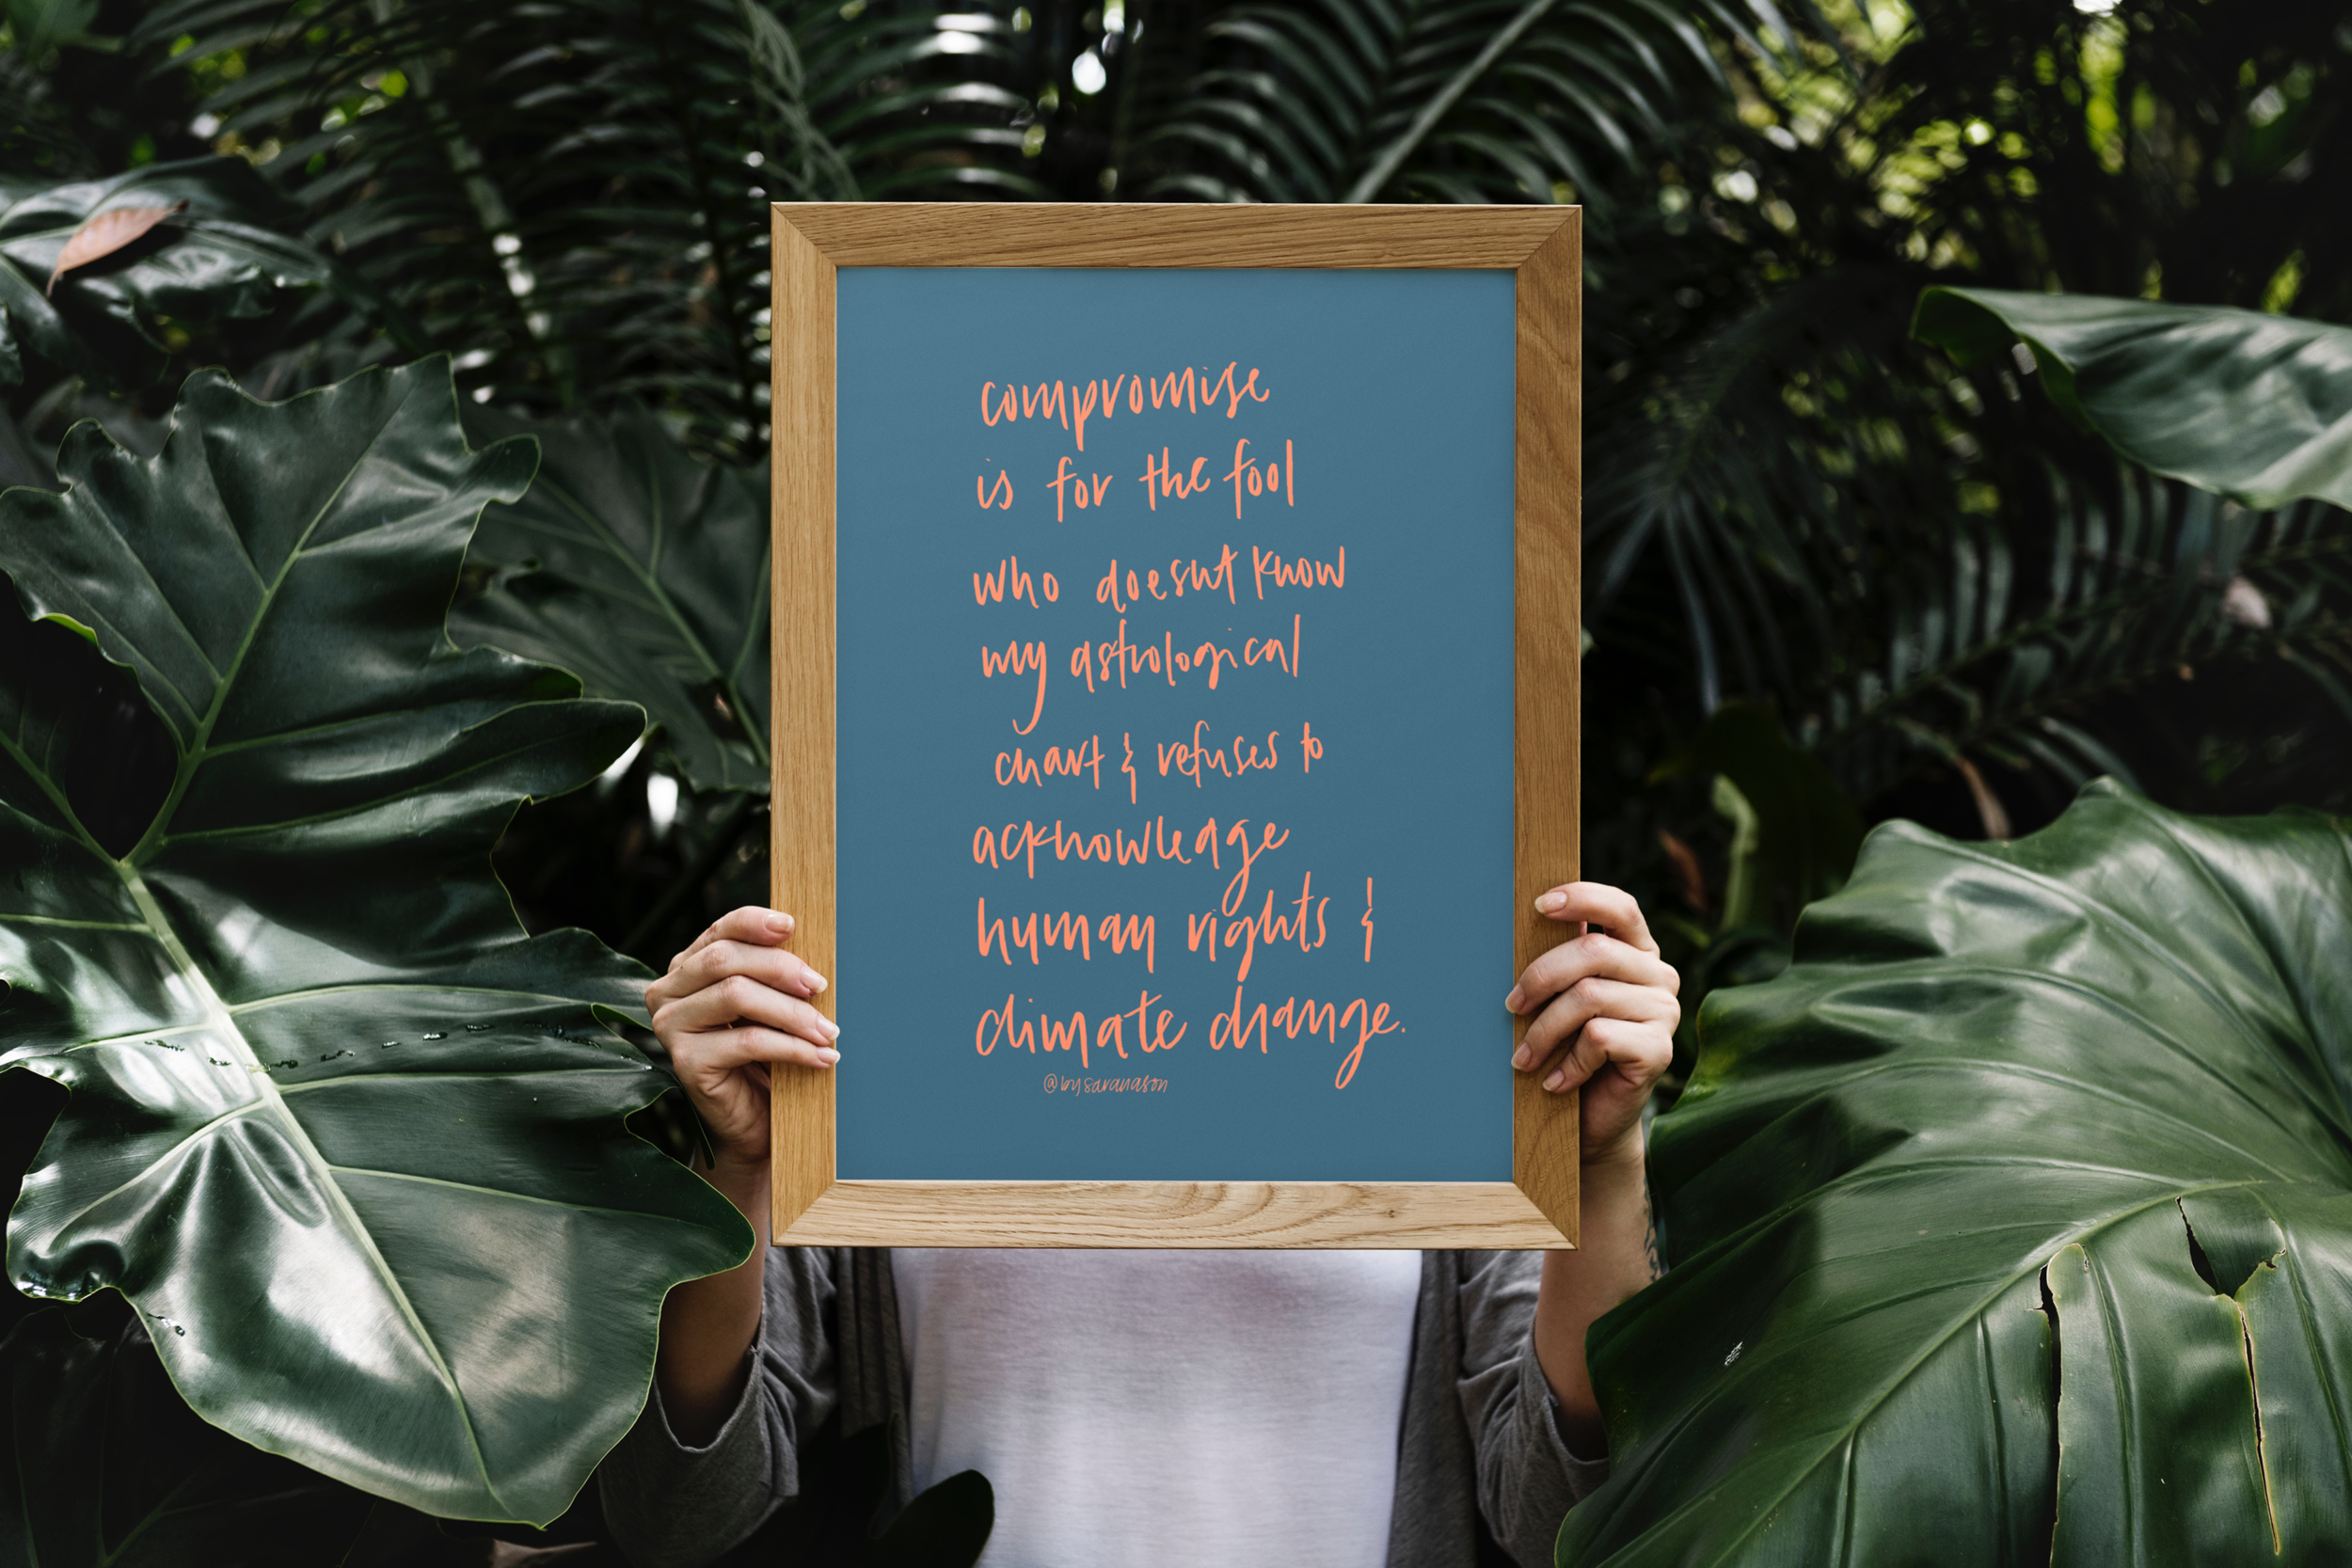 compromise
is for the fool
who doesnt know
my astrological
chart & refuses to
acknowledge
human rights &
climate change.
@bysaranason